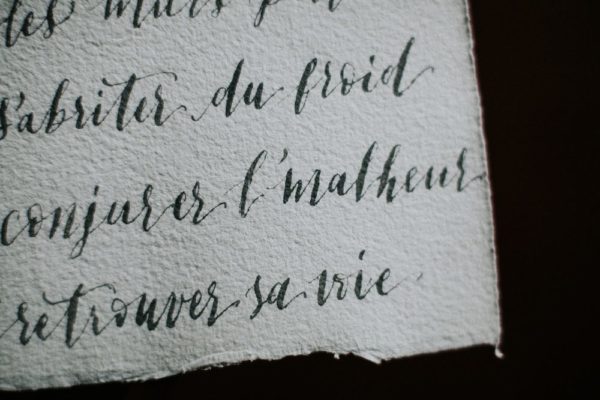 les murs
s'abriter du froid
conjurer l'malheur
retrouver sa vie